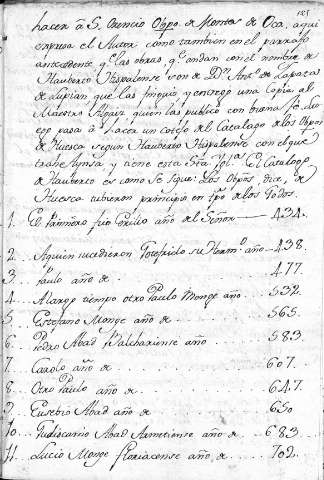 hacer á S. Orencio Obpo. de Montes de Oca, aqui
expresa el Autor como tambien en el parrafo
antecedente q.e las obras, q.e andan con el nombre de
Hauberto Hispalense son de D.n Ant. de Lupian
de Zapata que las fingió y entregó una copia al
Maestro Argaiz quien las publico con buena fé. Lue
go pasa á hacer un cotejo del Catalogo de los Obpos
de Huesca segun Hauberto Hispalense con el que
trahe Aynsa y tiene esta S.ta Ygl.a El Catalogo
de Hauberto es como se sigue: Los Obpos, dice, de
Huesca tubieron principio en tpo de los Godos.
1. El primero fue año del Señor 434.
2. A quien sucedieron su Herm.o año 438.
3. Paulo año de 477.
4. A largo tiempo otro Paulo Monge año 532.
5. Estefano Monge año de 565.
6. Pedro Abad año 583.
7. Carolo año de 607.
8. Otro Paulo año de 647.
9. Eusebio Abad año de 650
10. Abad año de 683
11. Lucio Monge Floriacense año de 702.